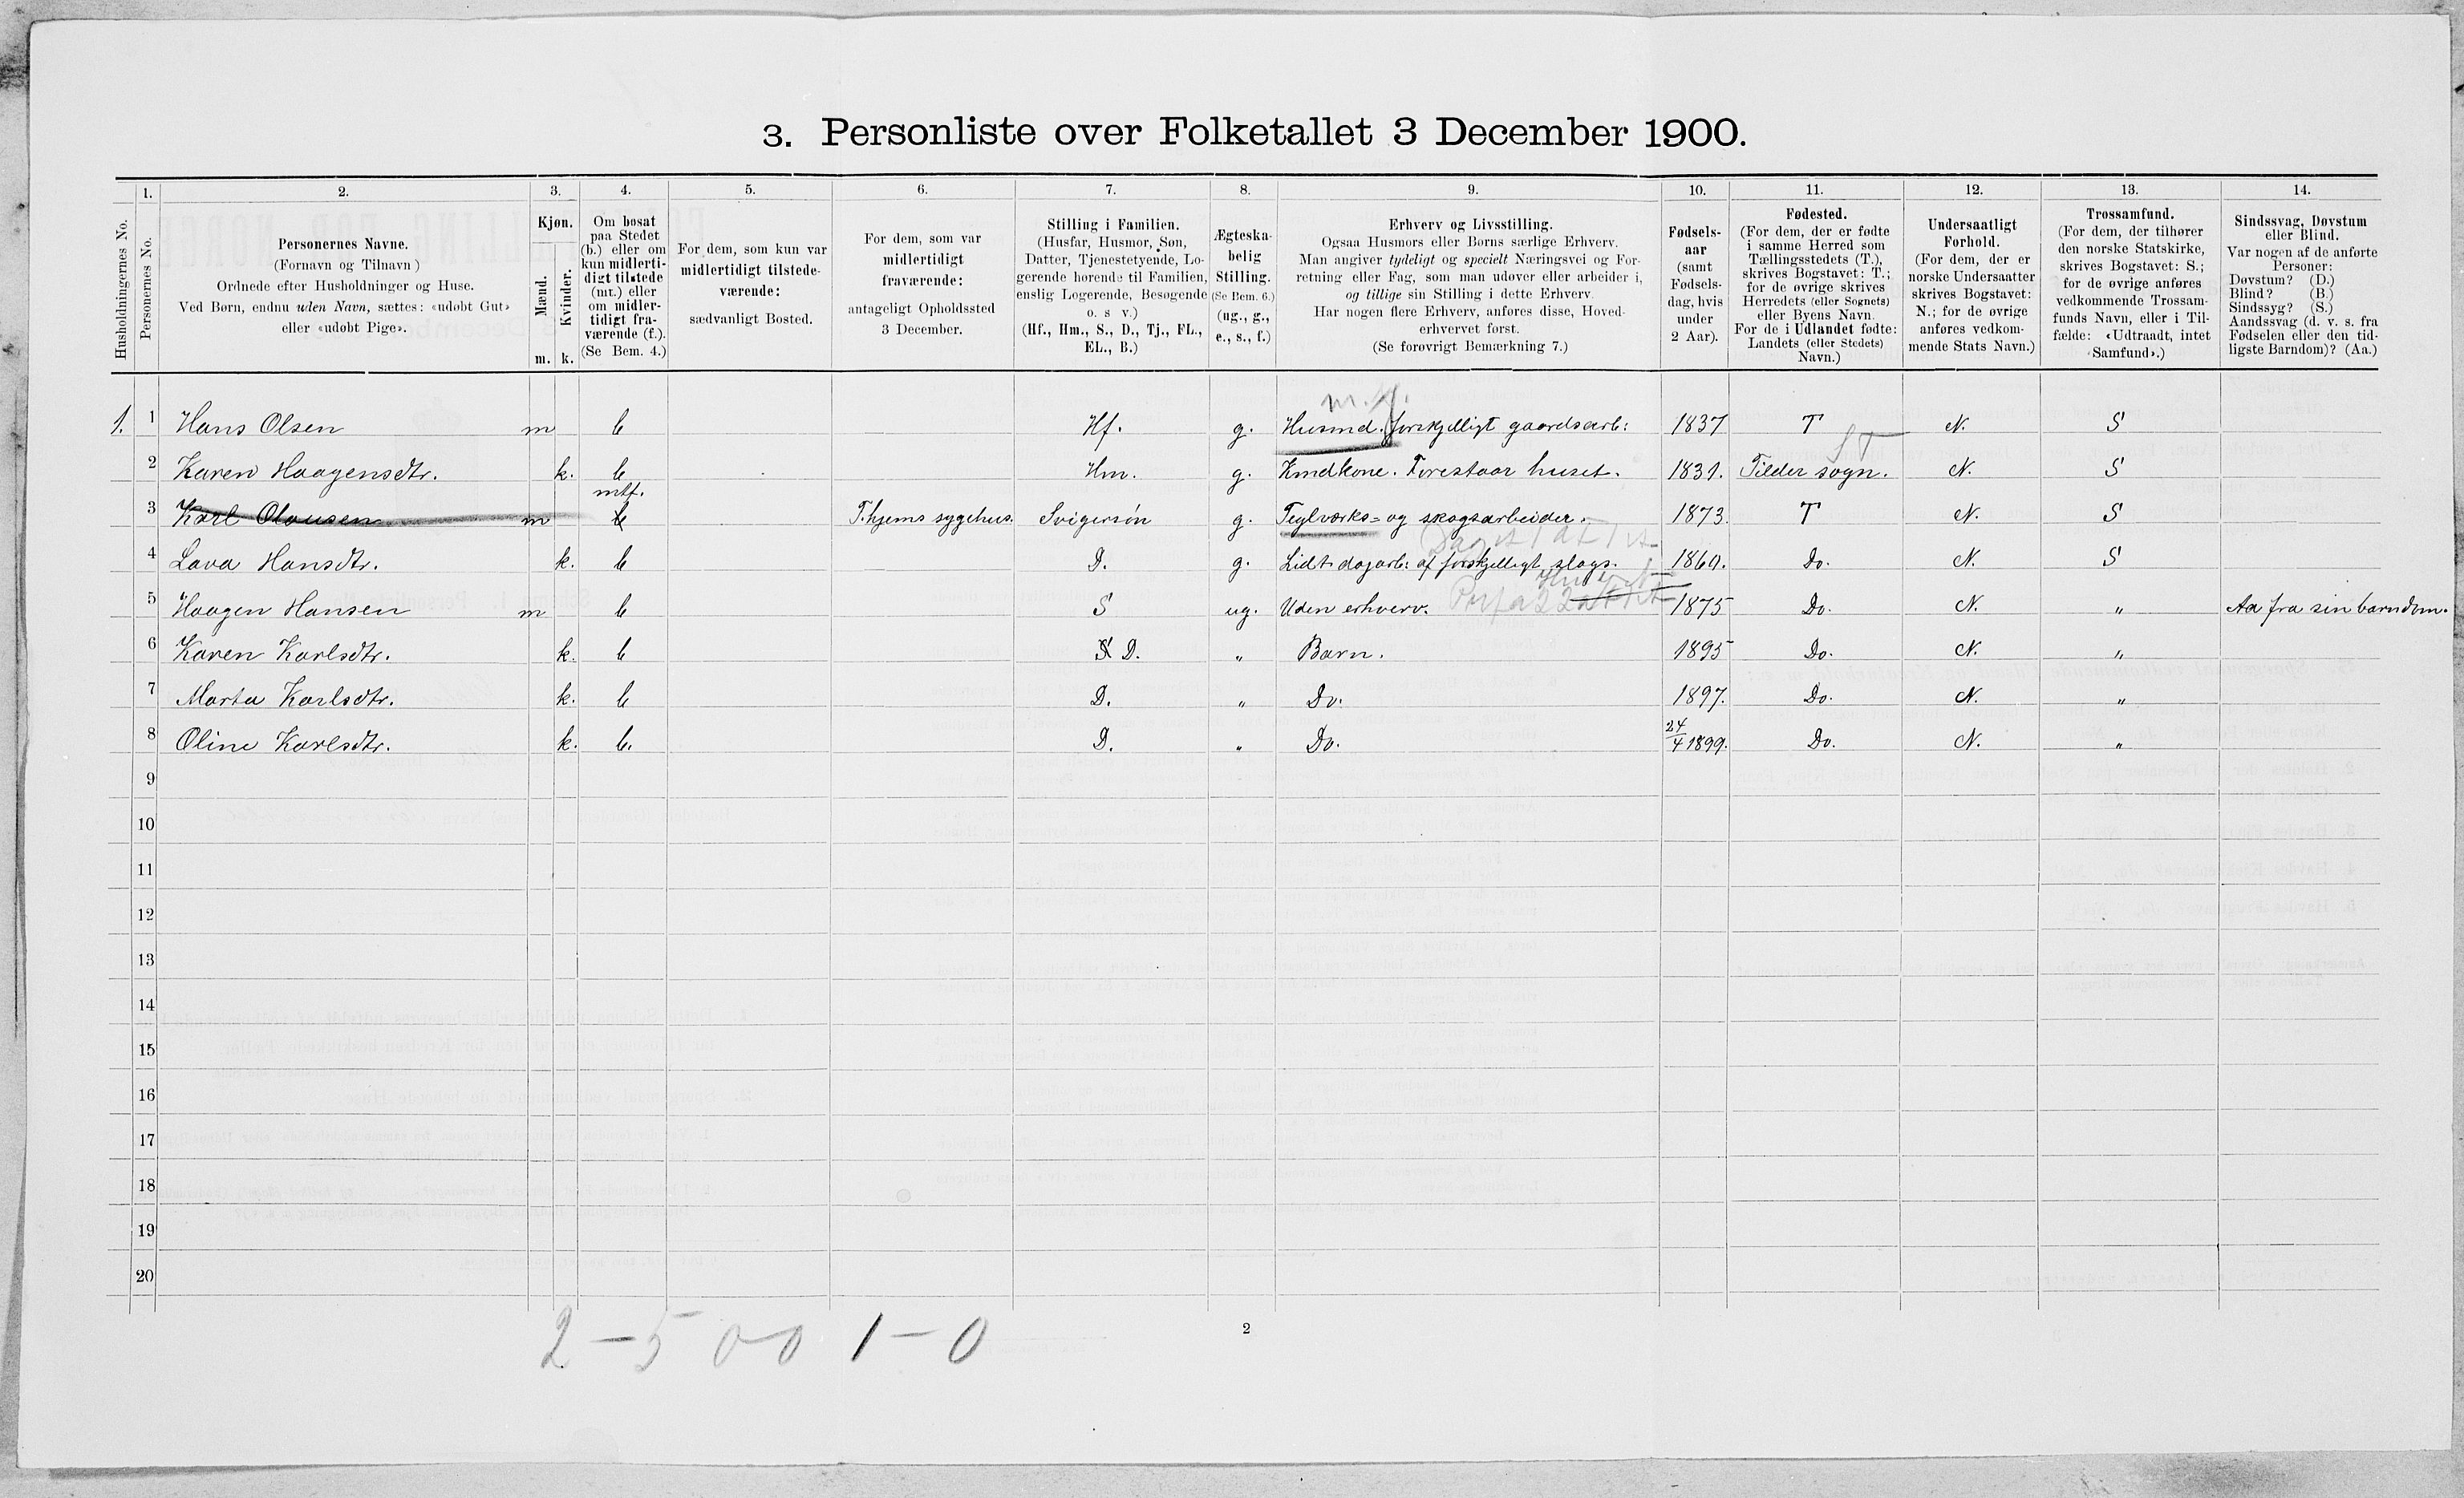 3. Personliste over Folketallet 3 December 1900.
1. 2. 3. 4. 5. 6. 7. 8. 9. 10. 11. 12. 13. 14.
Husholdningernes No.
Personernes No.
Personernes Navne.
(Fornavn og Tilnavn)
Ordnede efter Husholdninger og Huse.
Ved Børn, endnu uden Navn, sættes: «udøbt Gut»
eller «udøbt Pige».
Kjøn.
Mænd.
Kvinder.
m. k.
Om bosat
paa Stedet
(b.) eller om
kun midlerti-
digt tilstede
(mt.) eller
om midler-
tidigt fra-
værende (f.).
(Se Bem. 4.)
For dem, som kun var
midlertidigt tilstede-
værende:
sædvanligt Bosted.
For dem, som var
midlertidigt
fraværende:
antageligt Opholdssted
3 December.
Stilling i Familien.
(Husfar, Husmor, Søn,
Datter, Tjenestetyende, Lo-
gerende hørende til Familien,
enslig Logerende, Besøgende
o. s v.)
(Hf., Hm., S., D., Tj., FL.,
EL., B.)
Ægteska-
belig
Stilling.
(Se Bem. 6.)
(ug., g.,
e., s., f.)
Erhverv og Livsstilling.
Ogsaa Husmors eller Børns særlige Erhverv.
Man angiver tydeligt og specielt Næringsvei og For-
retning eller Fag, som man udøver eller arbeider i,
og tillige sin Stilling i dette Erhverv.
Har nogen flere Erhverv, anføres disse, Hoved-
erhvervet først.
(Se forøvrigt Bemærkning 7.)
Fødsels-
aar
(samt
Fødsels-
dag, hvis
under
2 Aar).
Fødested.
(For dem, der er fødte
i samme Herred som
Tællingsstedets (T.),
skrives Bogstavet: T.;
for de øvrige skrives
Herredets (eller Sognets)
eller Byens Navn.
For de i Udlandet fødte:
Landets (eller Stedets)
Navn.)
Undersaatligt
Forhold.
(For dem, der er
norske Undersaatter
skrives Bogstavet:
N.; for de øvrige
anføres vedkom-
mende Stats Navn.)
Trossamfund.
(For dem, der tilhører
den norske Statskirke,
skrives Bogstavet: S.;
for de øvrige anføres
vedkommende Trossam-
funds Navn, eller i Til-
fælde: «Udtraadt, intet
Samfund».)
Sindssvag, Døvstum
eller Blind.
Var nogen af de anførte
Personer:
Døvstum? (D.)
Blind? (B.)
Sindssyg? (S.)
Aandssvag (d. v. s. fra
Fødselen eller den tid-
ligste Barndom)? (Aa.)
1. 1 Hans Olsen m b Hf. g. Husmd. forskjelligt gaardsarb: 1837 T N. S
2 Karen Haagensdtr. k. b Hm. g. Kmdkone. Forestaar huset. 1831. Tilder sogn. N. S
mtf.
3 Karl Olausen m b T.hjems sygehus. Svigersøn g. Teglværks- og skogsarbeider. 1873. T N. S
4 Lava Hansdtr. k. b D. g. Lidt dagarb: af forskjelligt slags. 1860. Do. N. S
5 Haagen Hansen m b S ug. Uden erhverv. 1875 Do. N. " Aa fra sin barndom.
6 Karen Karlsdtr. k. b S D. " Barn. 1895 Do. N. "
7 Marta Karlsdtr. k. b D. " Do. 1897. Do. N. "
8 Oline Karlsdtr. k. b. D. " Do. 24/4 1899. Do. N. "
9
10
11
12
13
14
15
16
17
18
19
20
2-5 0-0 1-0
2